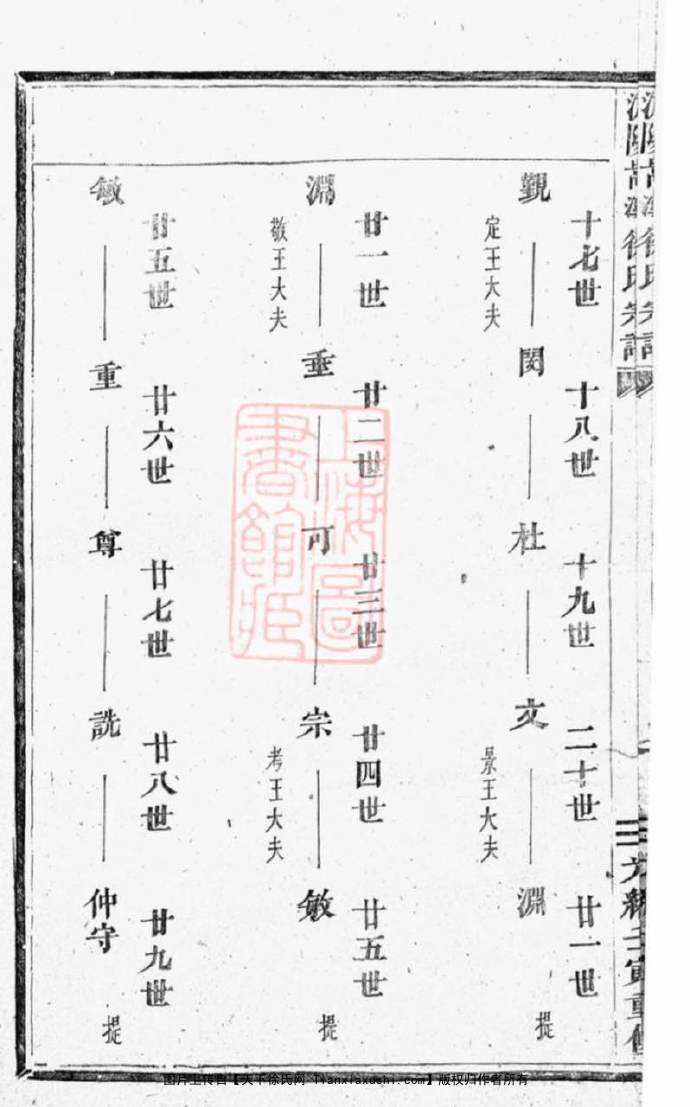 十七世 十八世 十九世 二十世 廿一世
觀 閔 杜 文 淵 提
定王大夫
景王大夫
廿一世 廿二世 廿三世 廿四世 廿五世
淵 垂 可 宗 敏 提
敬王大夫
考王大夫
廿五世 廿六世 廿七世 廿八世 廿九世
敏 重 尊 詵 仲守 提
上海圖書館藏
图片上传自【天下徐氏网 Tianxiaxushi.com】版权归作者所有